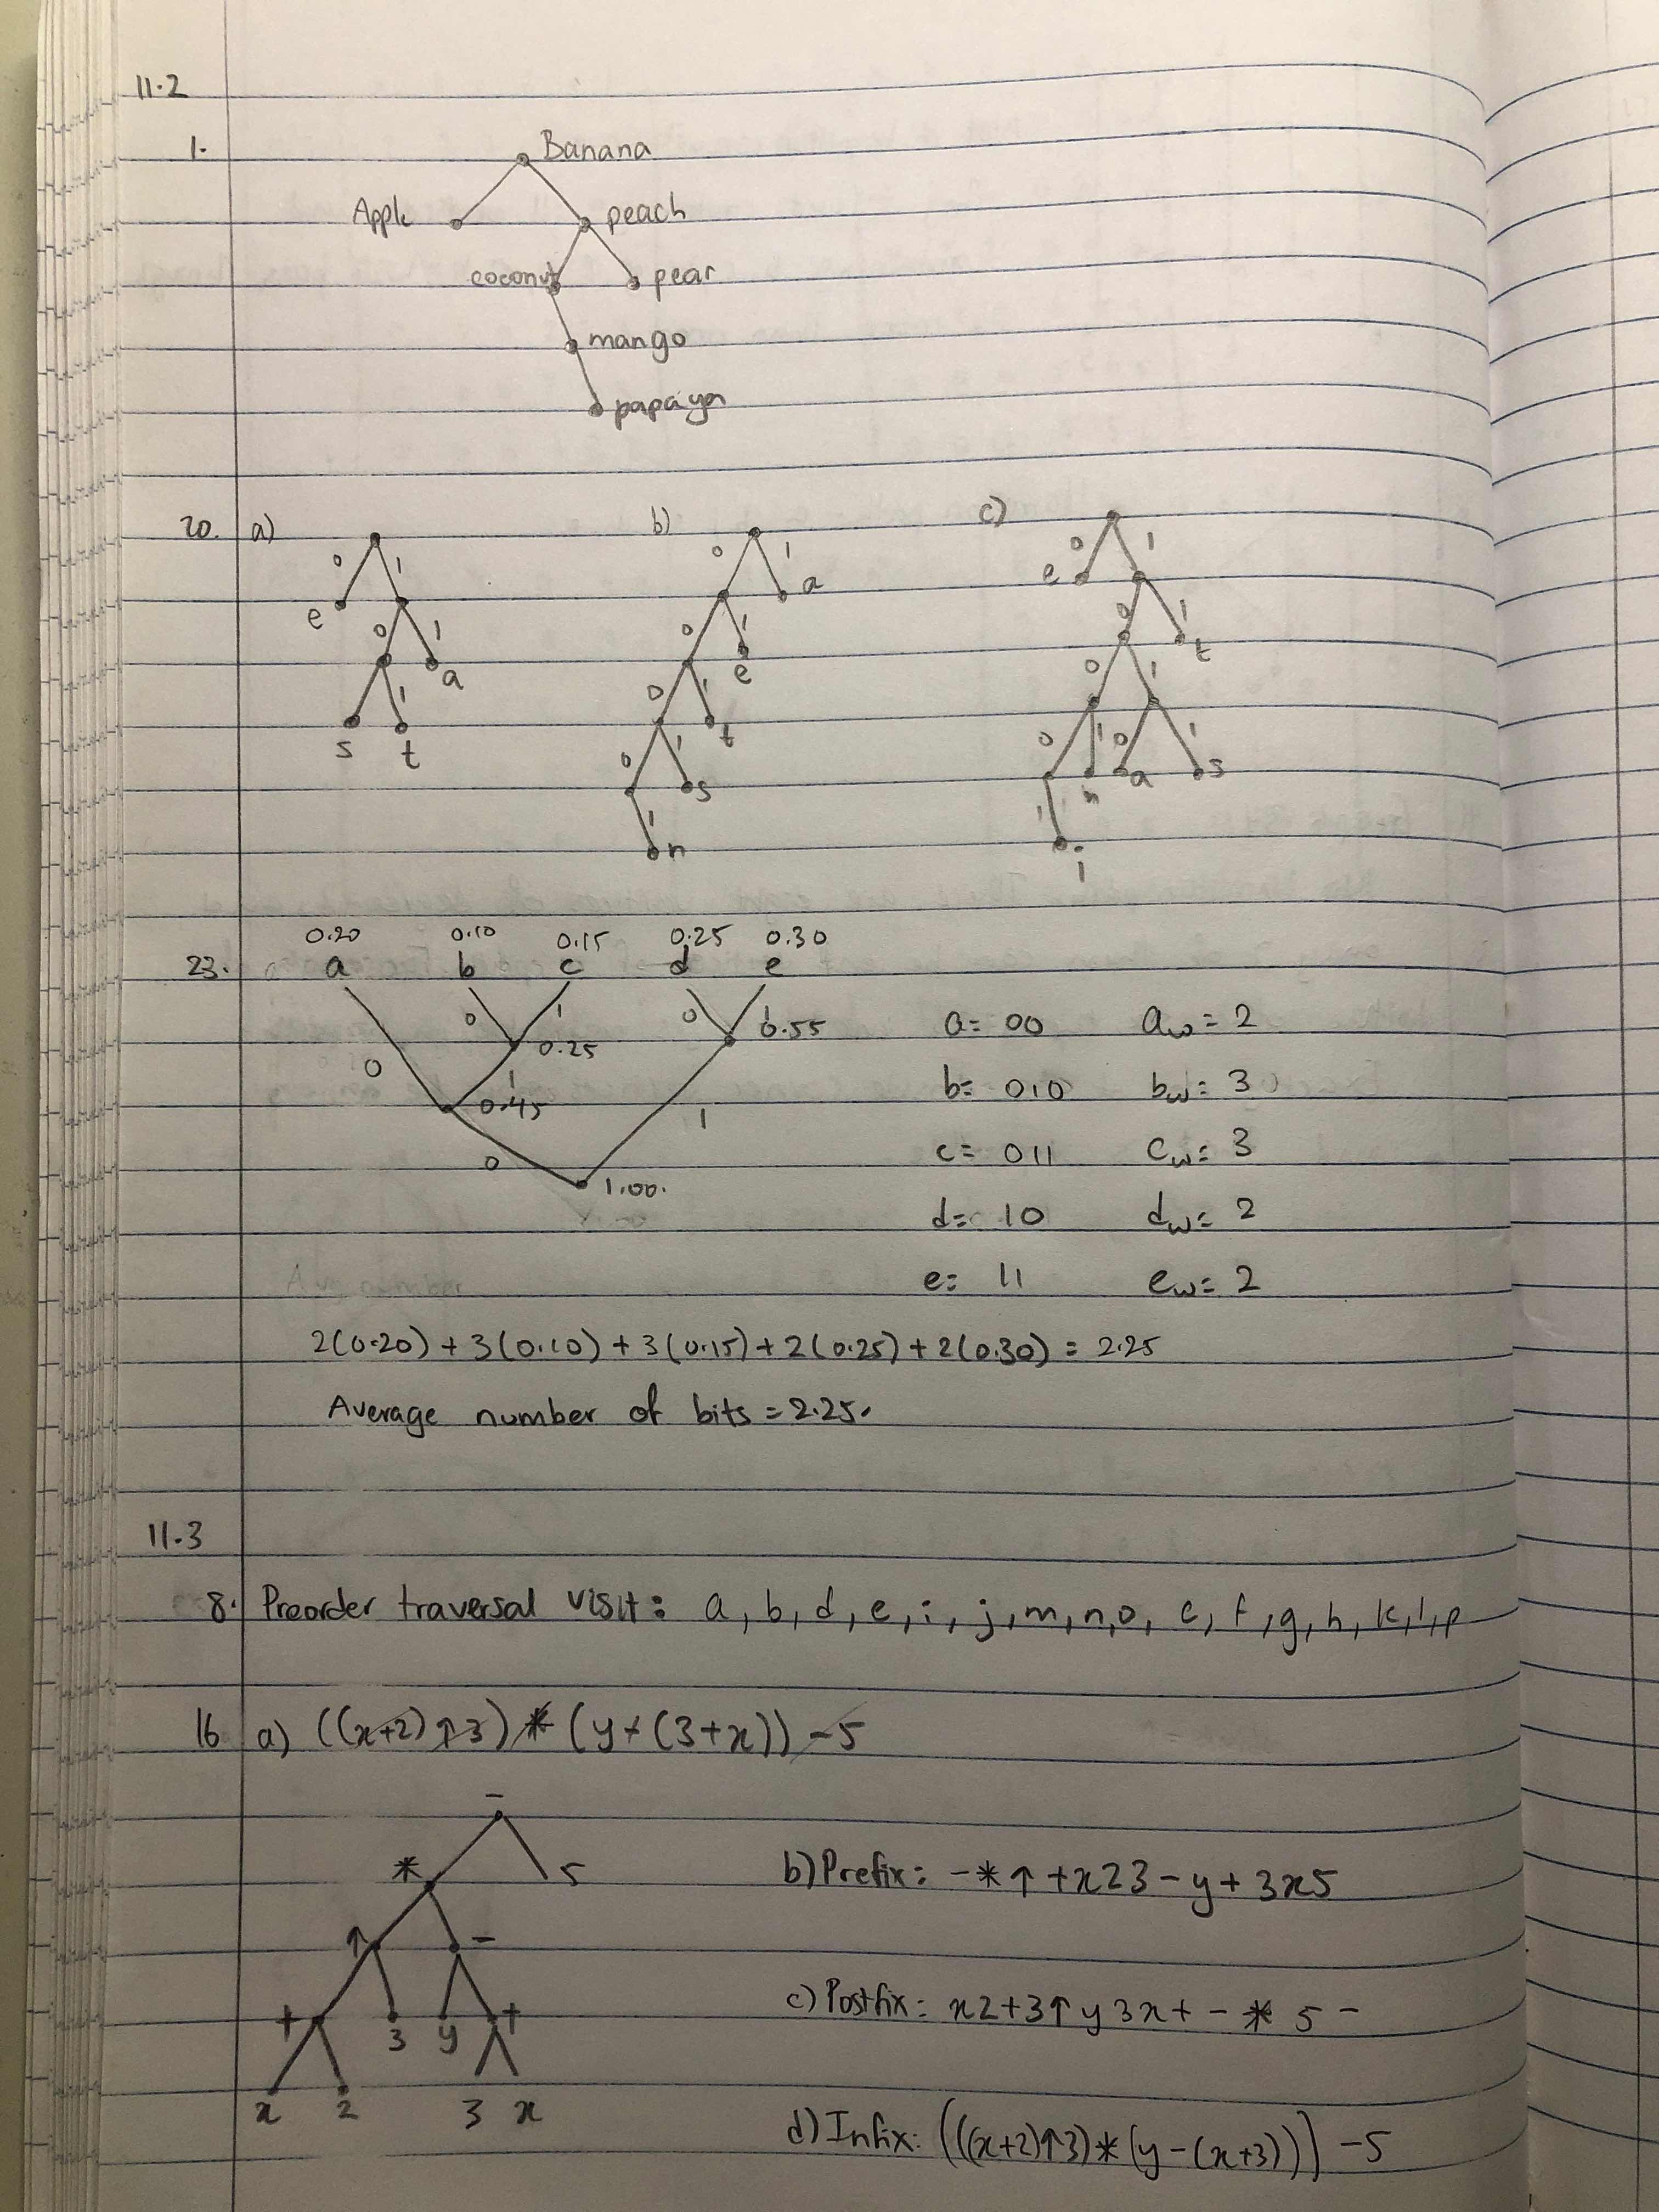 11.2
1.
Banana
Apple peach
coconut pear
mango
papaya
20. a) b) c)
0 1 0 1 a 0 1
e e
0 1 0 1 0 1
a e t
s 1 t 0 1 t 0 1
0 1 s 0 1 0 1
n a s
1 n 1 i
0.20 0.10 0.15 0.25 0.30
23. a b c d e
0 1 0 1 0.55
0 0.25
1 0.45 1
0 1.00.
a= 00 aw= 2
b= 010 bw= 3
c= 011 cw= 3
d= 10 dw= 2
e= 11 ew= 2
Ave number
2(0.20) + 3(0.10) + 3(0.15) + 2(0.25) + 2(0.30) = 2.25
Average number of bits = 2.25.
11.3
8. Preorder traversal visit: a, b, d, e, i, j, m, n, o, c, f, g, h, k, l, p
16 a) ((x+2)↑3) * (y-(3+x)) - 5
-
* 5
↑ -
+ 3 y +
x 2 3 x
b) Prefix: - * ↑ + x 2 3 - y + 3 x 5
c) Postfix: x 2 + 3 ↑ y 3 x + - * 5 -
d) Infix: (((x+2)↑3) * (y-(x+3))) - 5